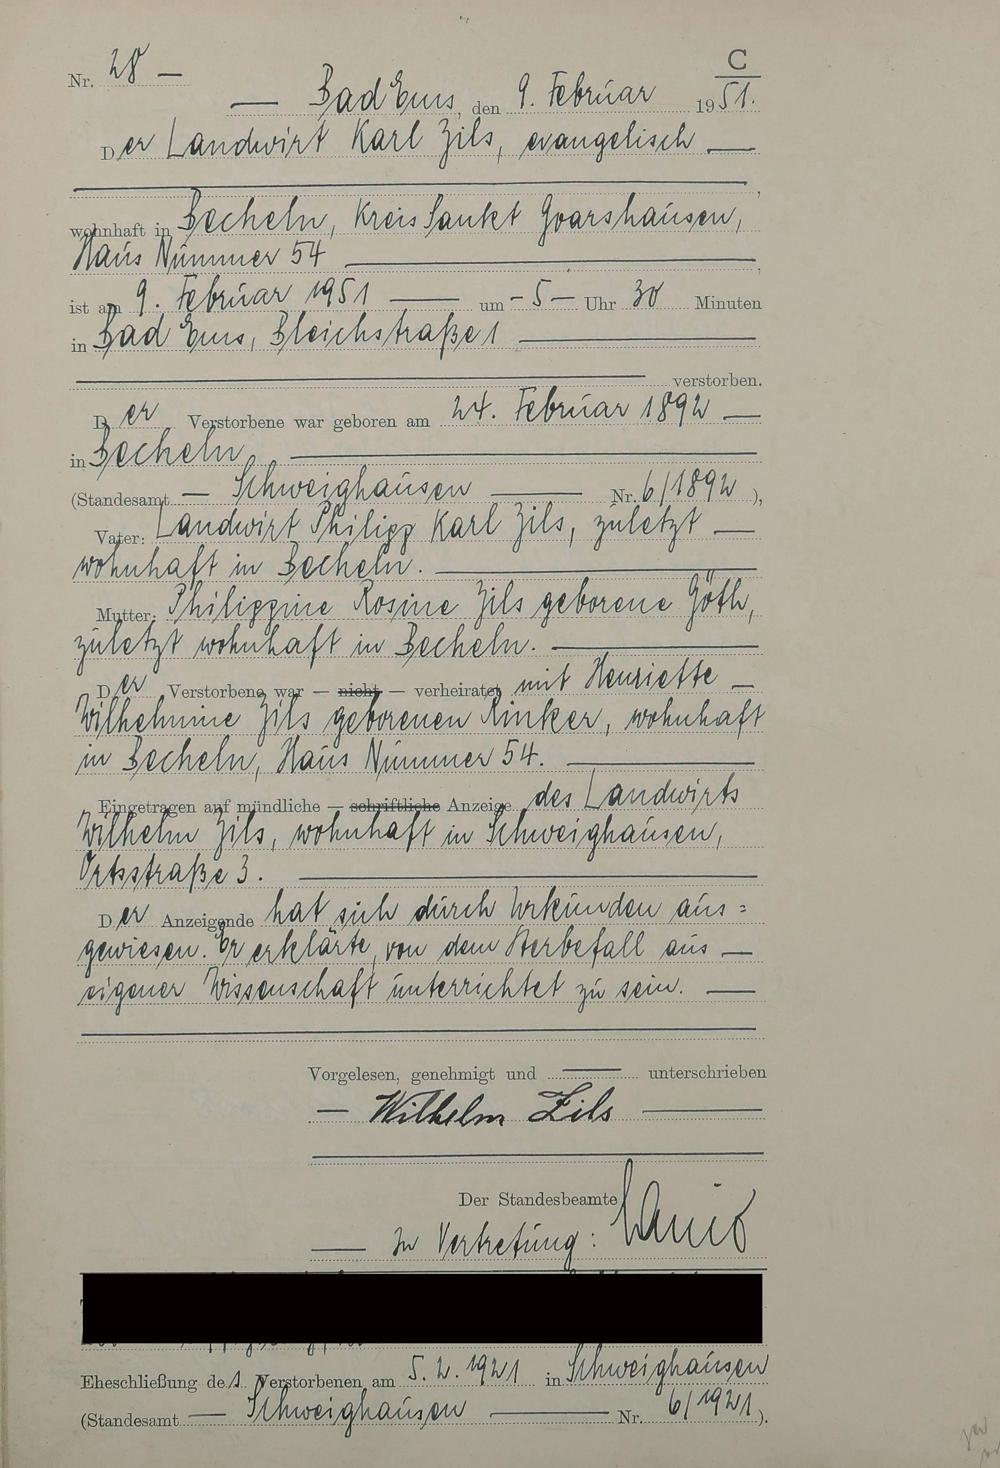 C
Nr. 28 —
— Bad Ems, den 9. Februar 1951.
Der Landwirt Karl Zils, evangelisch —
wohnhaft in Becheln, Kreis Sankt Goarshausen,
Haus Nummer 54
ist am 9. Februar 1951 — um - 5 - Uhr 30 Minuten
in Bad Ems, Bleichstraße 1
verstorben.
Der Verstorbene war geboren am 24. Februar 1892 —
in Becheln
(Standesamt — Schweighausen — Nr. 6/1892),
Vater: Landwirt Philipp Karl Zils, zuletzt —
wohnhaft in Becheln.
Mutter: Philippine Rosine Zils geborene Göth,
zuletzt wohnhaft in Becheln.
Der Verstorbene war — nicht — verheiratet mit Henriette —
Wilhelmine Zils geborenen Rinker, wohnhaft
in Becheln, Haus Nummer 54.
Eingetragen auf mündliche — schriftliche Anzeige des Landwirts
Wilhelm Zils, wohnhaft in Schweighausen,
Ortsstraße 3.
Der Anzeigende hat sich durch Urkunden aus=
gewiesen. Er erklärte, von dem Sterbefall aus —
eigener Wissenschaft unterrichtet zu sein. —
Vorgelesen, genehmigt und — unterschrieben
— Wilhelm Zils —
Der Standesbeamte
— In Vertretung:
Eheschließung des Verstorbenen am 5.2.1921 in Schweighausen
(Standesamt — Schweighausen — Nr. 6/1921).